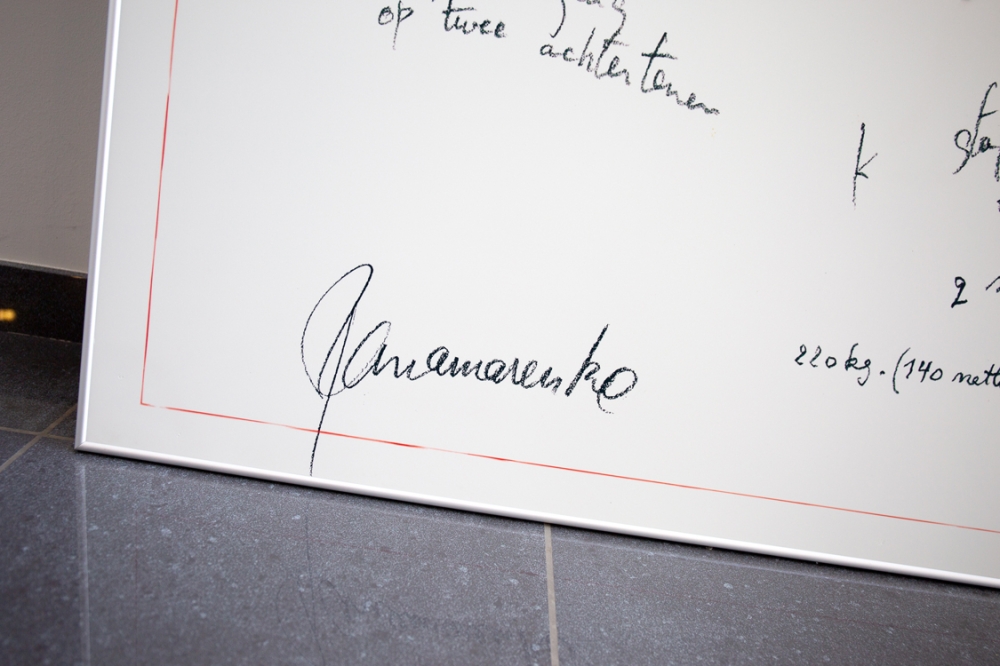 op twee achtertenen
k
2
220kg. (140 nett
Panamarenko